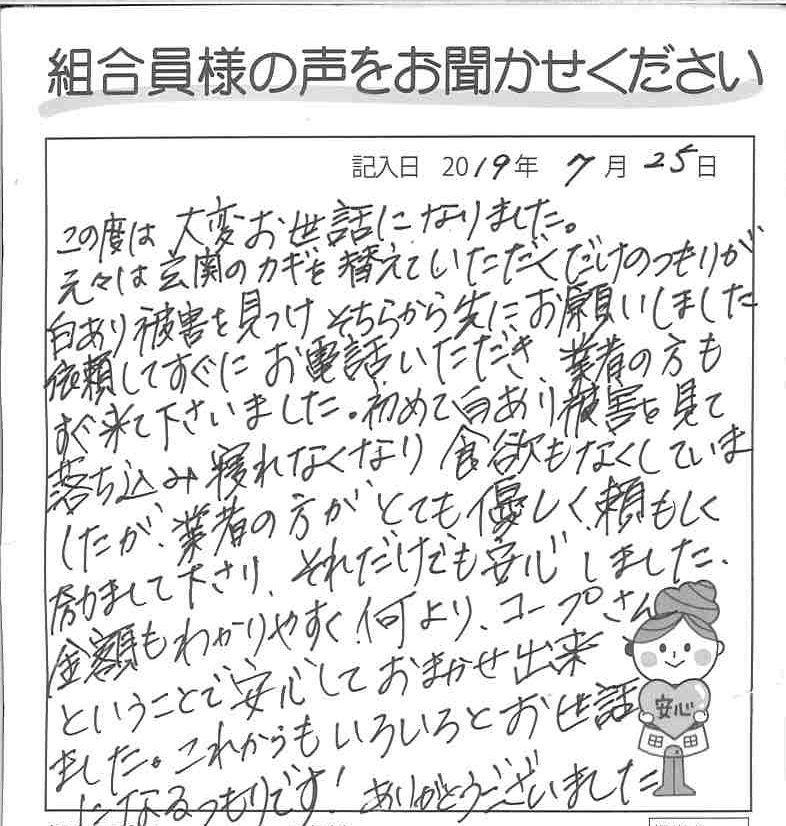 組合員様の声をお聞かせください
記入日 2019年 7月 25日
この度は 大変お世話になりました。
元々は玄関のカギを替えていただくだけのつもりが
白あり被害を見つけ そちらから先にお願いしました
依頼してすぐに お電話いただき、業者の方も
すぐ来て下さいました。初めて白あり被害を見て
落ち込み 寝れなくなり 食欲もなくしていま
したが、業者の方が とても 優しく、頼もしく
励まして下さり、それだけでも安心しました、
金額もわかりやすく、何より、コープさん
ということで安心しておまかせ出来
ました。これからもいろいろとお世話
になるつもりです! ありがとうございました
安心